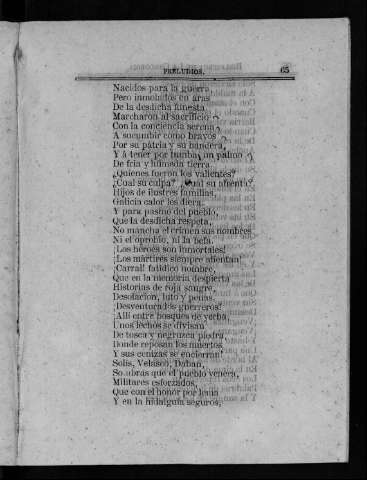 PRELUDIOS. 65
Nacidos para la guerra
Pero inmolados en aras
De la desdicha funesta
Marcharon al sacrificio
Con la conciencia serena
A sucumbir como bravos
Por su pátria y su bandera,
Y á tener por tumba un palmo
De fria y húmeda tierra.
¿Quienes fueron los valientes?
¿Cual su culpa? ¿Cual su afrenta?
Hijos de ilustres familias,
Galicia calor les diera,
Y para pasmo del pueblo,
Que la desdicha respeta,
No mancha el crimen sus nombres
Ni el oprobio, ni la befa.
¡Los héroes son inmortales!
¡Los mártires siempre alientan!
¡Carral! fatídico nombre,
Que en la memoria despierta
Historias de roja sangre,
Desolacion, luto y penas.
¡Desventurados guerreros!
¡Allí entre bosques de yerba
Unos lechos se divisan
De tosca y negruzca piedra,
Donde reposan los muertos
Y sus cenizas se encierran!
Solís, Velasco, Daban,
Sombras que el pueblo venera,
Militares esforzados,
Que con el honor por lema
Y en la hidalguía seguros,